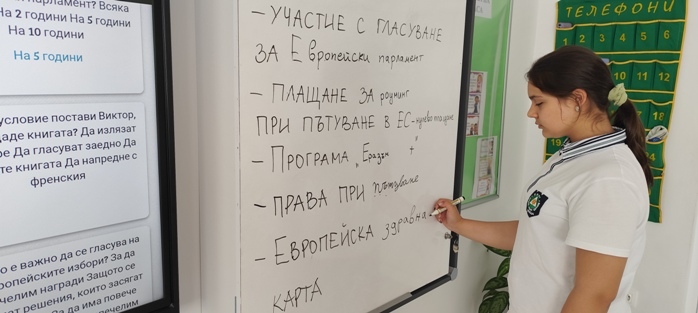 парламент? Всяка
На 2 години На 5 години
На 10 години
На 5 години
условие постави Виктор,
книгата? Да излязат
Да гласуват заедно Да
книгата Да напредне с
френския
е важно да се гласува на
избори? За да
награди Защото се
решения, които засягат
За да има повече
– УЧАСТИЕ С ГЛАСУВАНЕ
ЗА Европейски парламент
– ПЛАЩАНЕ ЗА роуминг
ПРИ ПЪТУВАНЕ В ЕС-
– ПРОГРАМА „Еразъм +"
– ПРАВА ПРИ пътуване
– ЕВРОПЕЙСКА здравна
КАРТА
ТЕЛЕФОНИ
1 2 3 4 5 6
10 11 12
18
19